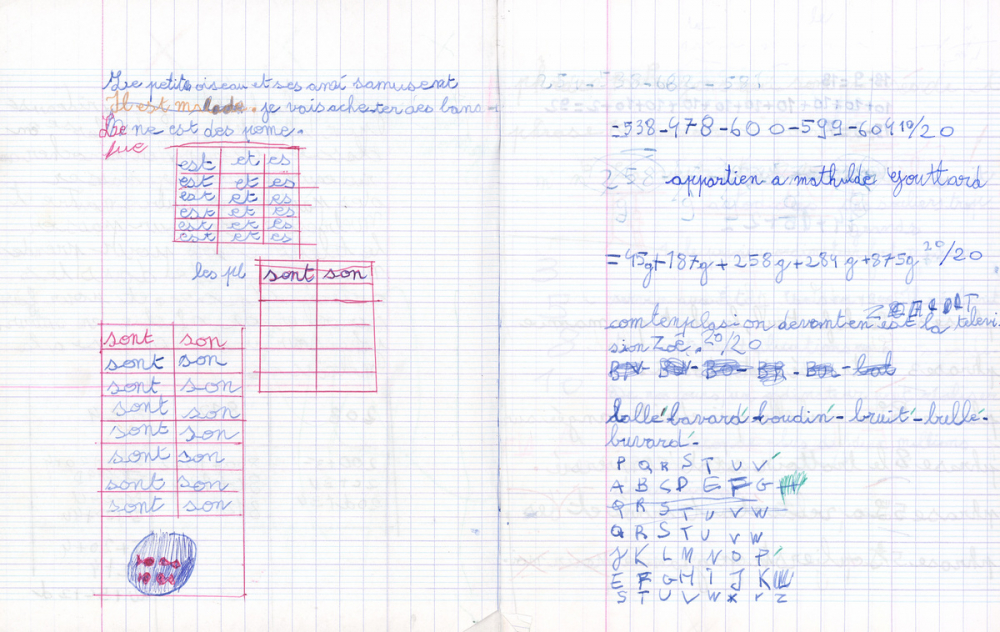 Le petits oiseau et ses ami samusent
Il est malade. je vais acheter des bons
De ne est des pome.
fue
est et es
est et es
est et es
est et es
est et es
est et es
les pl
sont son
sont son
sont son
sont son
sont son
sont son
sont son
sont son
sont son
=538-478-600-599-604 19/20
25 appartien a mathilde Gouttard
=45g+187g+258g+284g+875g 20/20
comtenplasion devamten est la televi
sion Zoé. 20/20
ballé bavard boudin-bruit-bullé-
buvard-
P Q R S T U V
A B C D E F G
Q R S T U V W
Q R S T U V W
J K L M N O P
E F G H I J K
S T U V W X Y Z